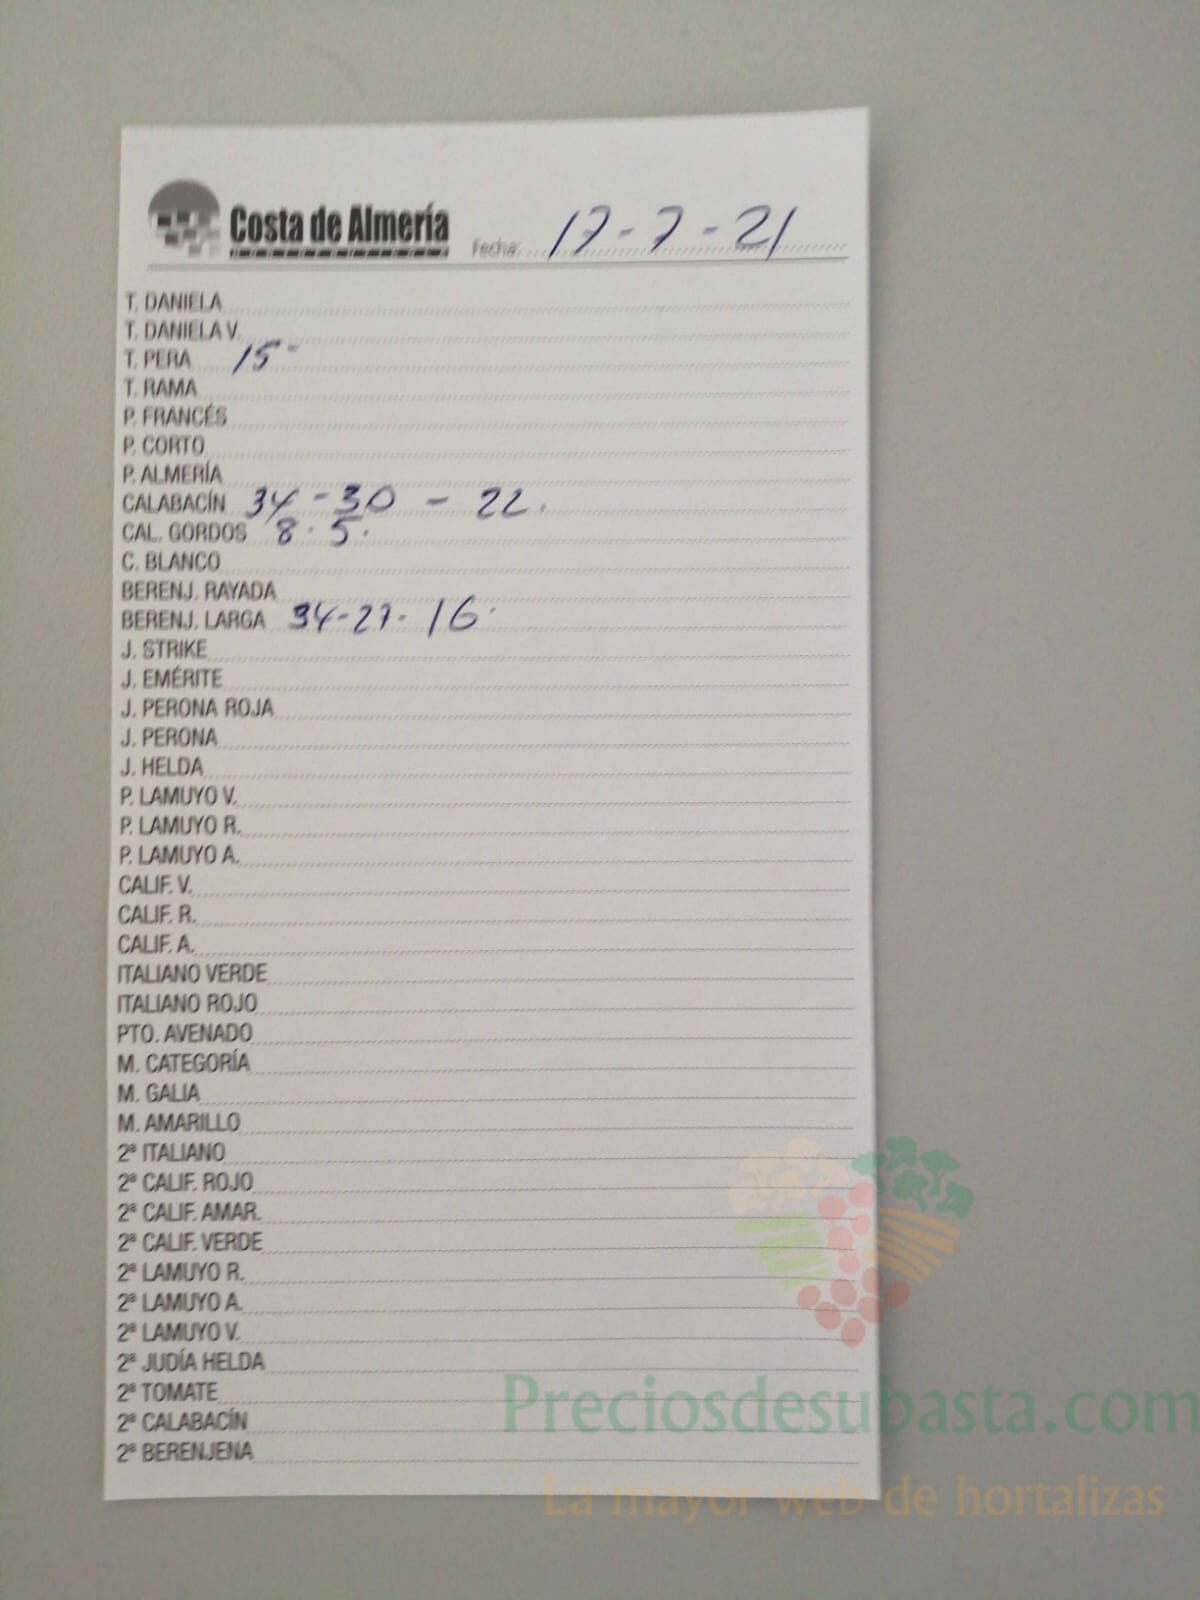 Costa de Almería Fecha: 17-7-21
T. DANIELA
T. DANIELA V.
T. PERA 15-
T. RAMA
P. FRANCÉS
P. CORTO
P. ALMERÍA
CALABACÍN 34-30-22.
CAL. GORDOS 8.5.
C. BLANCO
BERENJ. RAYADA
BERENJ. LARGA 34-27-16.
J. STRIKE
J. EMÉRITE
J. PERONA ROJA
J. PERONA
J. HELDA
P. LAMUYO V.
P. LAMUYO R.
P. LAMUYO A.
CALIF. V.
CALIF. R.
CALIF. A.
ITALIANO VERDE
ITALIANO ROJO
PTO. AVENADO
M. CATEGORÍA
M. GALIA
M. AMARILLO
2ª ITALIANO
2ª CALIF. ROJO
2ª CALIF. AMAR.
2ª CALIF. VERDE
2ª LAMUYO R.
2ª LAMUYO A.
2ª LAMUYO V.
2ª JUDÍA HELDA
2ª TOMATE
2ª CALABACÍN
2ª BERENJENA
Preciosdesubasta.com
La mayor web de hortalizas